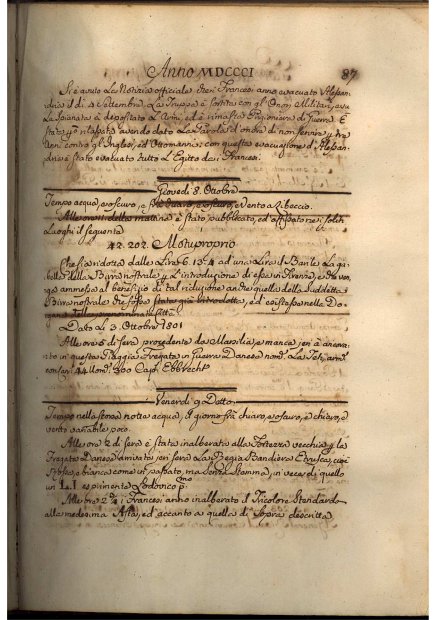 Anno MDCCCI 87
Si è avuto la Notizia officiale che i Francesi anno evacuato Alessan-
dria il dì 2 Settembre. La Truppa è sortita con gl'Onori Militari, e su
La Spianata à depositato L'Armi, ed è rimasta Prigioniera di Guerra. È
stata rilasciata avendo dato La Parola d'onore di non servire
Anni contro gl'Inglesi, ed Ottomanni; con questa evacuazione d'Alessan-
dria è stato evacuato tutto L'Egitto dai Francesi.
Giovedì 8. Ottobre
Tempo acqua, e oscuro, e oscuro, e vento a Libeccio.
Alle ore 11 della matina è stato pubblicato, ed affissato nei soliti
Luoghi il seguente
42.202. Motuproprio
Che sia ridotta dalle Lire 6. 13. 4 ad una Lira il Barile La ga-
bella della Birra nostrale L'introduzione di essa in Firenze, e che ven-
ga ammessa al benefizio di tal riduzione anche quella della suddetta
Birra nostrale che fosse stata già introdotta, ed esistesse nelle Do-
gane Città
Dato Li 3 Ottobre 1801
Alle ore 5 di sera procedente da Marsilia, e manca, è anco-
rato in questa Piaggia Fregata in Guerra Danese nom.ta La Teti, arm.
con Can. 44 Uom. 300 Cap. Ebbrecht
Venerdì 9 Detto
Tempo nella scorsa notte acqua, il giorno chiaro, e oscuro, e chiaro, e
vento variabile, poco.
Alle ore 2 di sera è stata inalberata alla Fortezza vecchia
Fregata Danese Amirato, ieri sera La Regia Bandiera Etrusca, cioè
e bianca come in passato, ma senza Stemma, in vece di quello
un L. I. esprimente Lodovico p.mo
Alle ore 2 ¼ i Francesi anno inalberato il Tricolore Stendardo
alla medesima Asta, ed accanto a quella di Sopra descritta